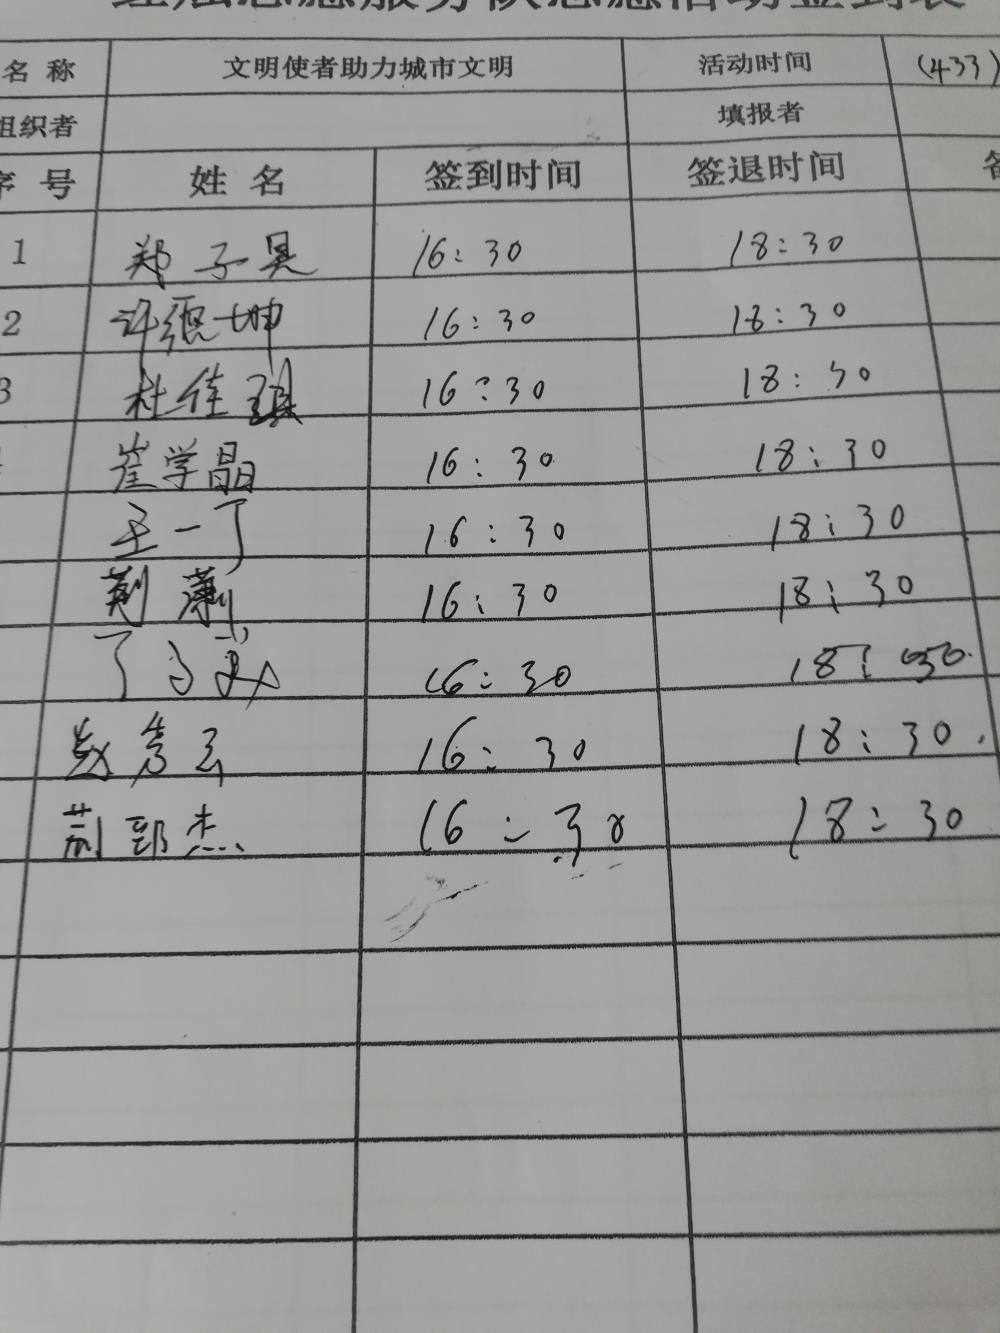 名 称 文明使者助力城市文明 活动时间 (433)
组织者 填报者
序 号 姓 名 签到时间 签退时间 备
1 郑子昊 16:30 18:30
2 许德坤 16:30 18:30
3 杜佳琪 16:30 18:30
崔学晶 16:30 18:30
王一丁 16:30 18:30
荆 16:30 18:30
丁 16:30 18:30
赵 16:30 18:30
荆郅杰 16:30 18:30